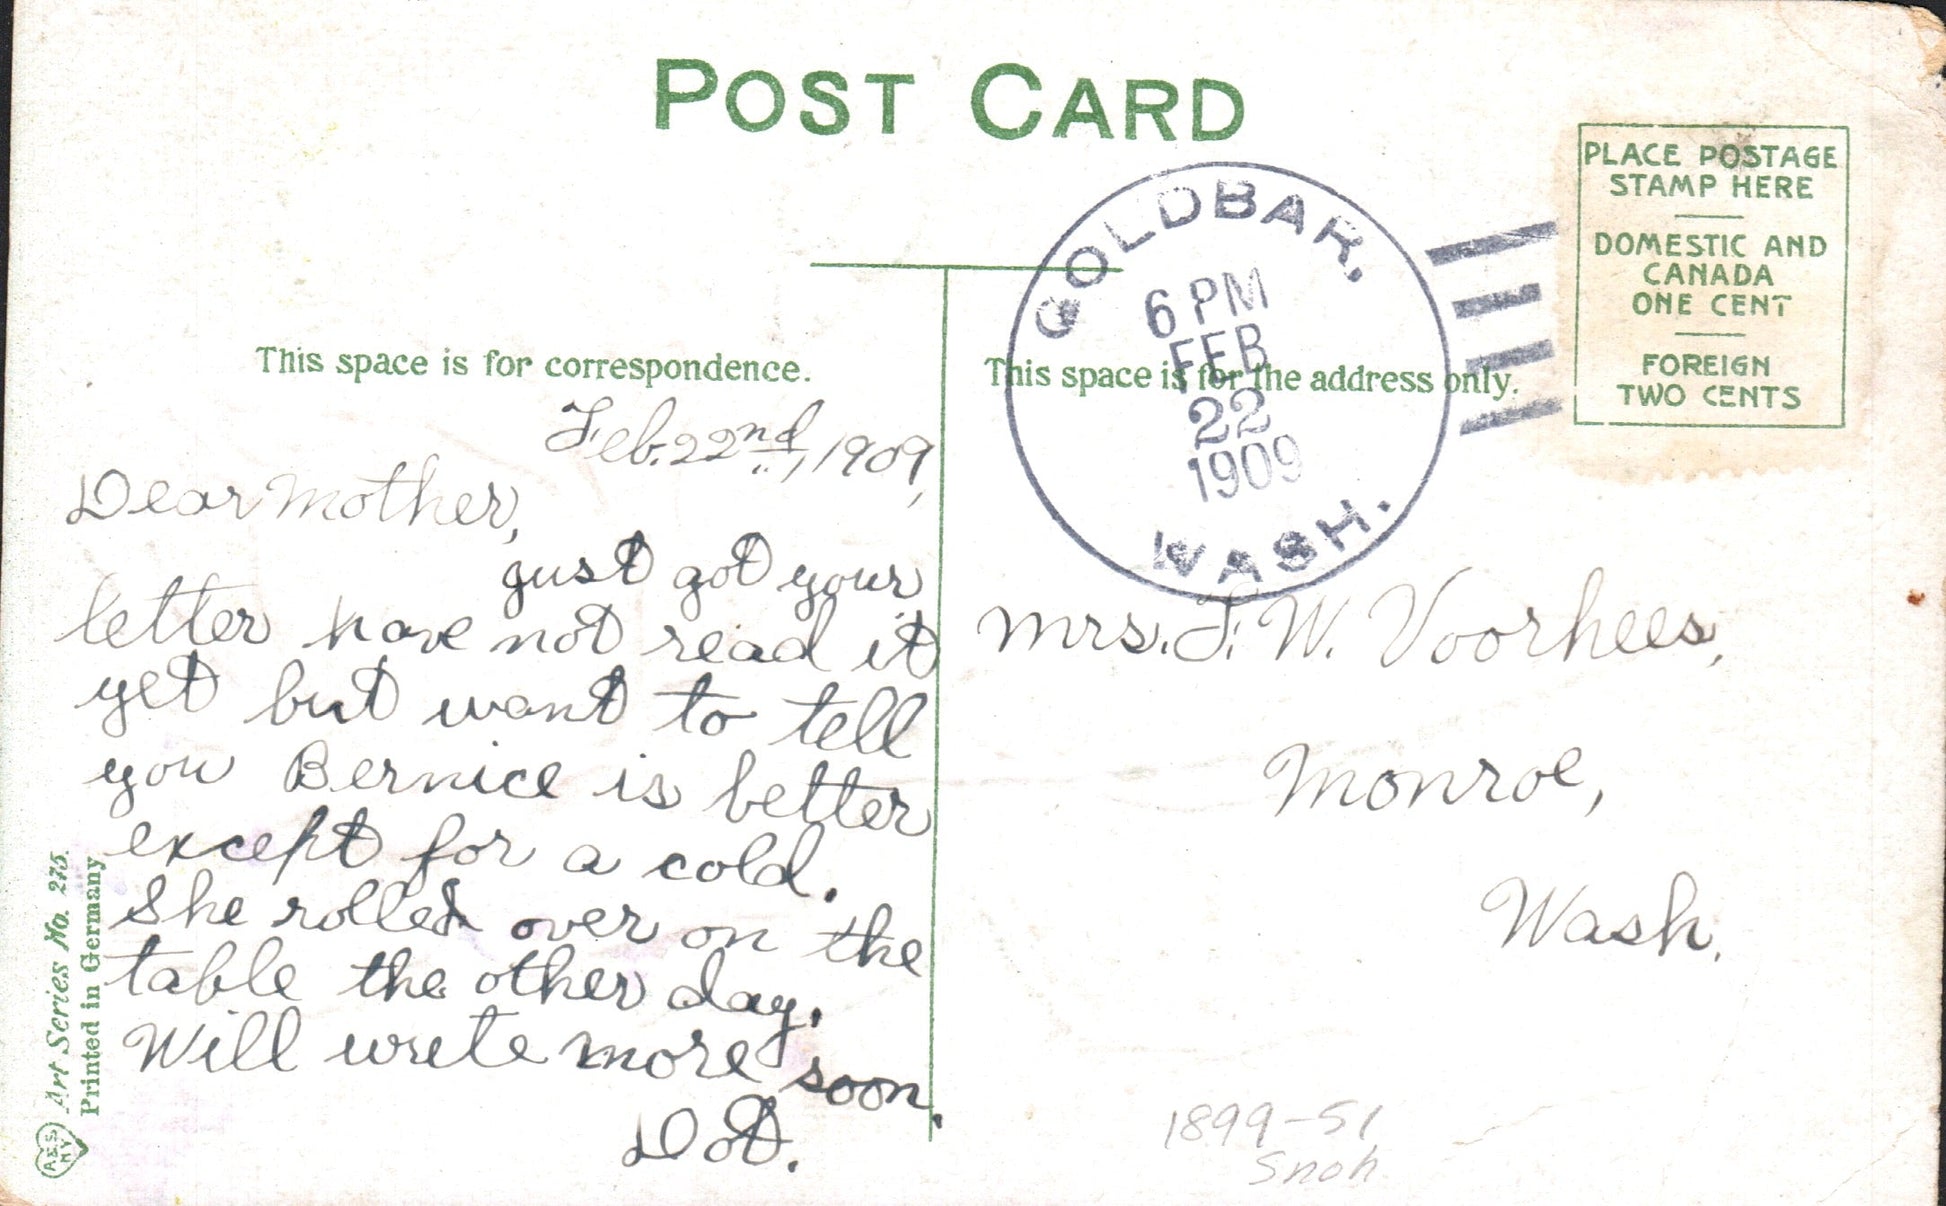 POST CARD
PLACE POSTAGE
STAMP HERE
DOMESTIC AND
CANADA
ONE CENT
FOREIGN
TWO CENTS
GOLDBAR,
6 PM
FEB
22
1909
WASH.
This space is for correspondence.
This space is for the address only.
Feb. 22nd, 1909,
Dear Mother,
just got your
letter have not read it
yet but want to tell
you Bernice is better
except for a cold.
She rolled over on the
table the other day.
Will write more soon.
Dot.
Mrs. F. W. Voorhees,
Monroe,
Wash.
1899-51
Snoh
Art Series No. 275.
Printed in Germany
A&S
NY